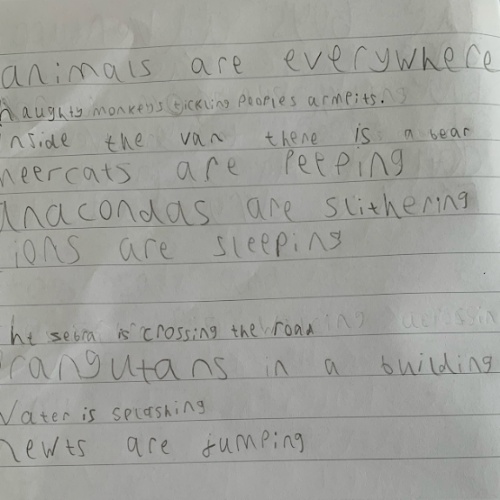 animals are everywhere
naughty monkeys tickling peoples armpits.
nside the van there is a bear
neercats are peeping
anacondas are slithering
ions are sleeping
ht sebra is crossing the road
rangutans in a building
Water is splashing
newts are jumping